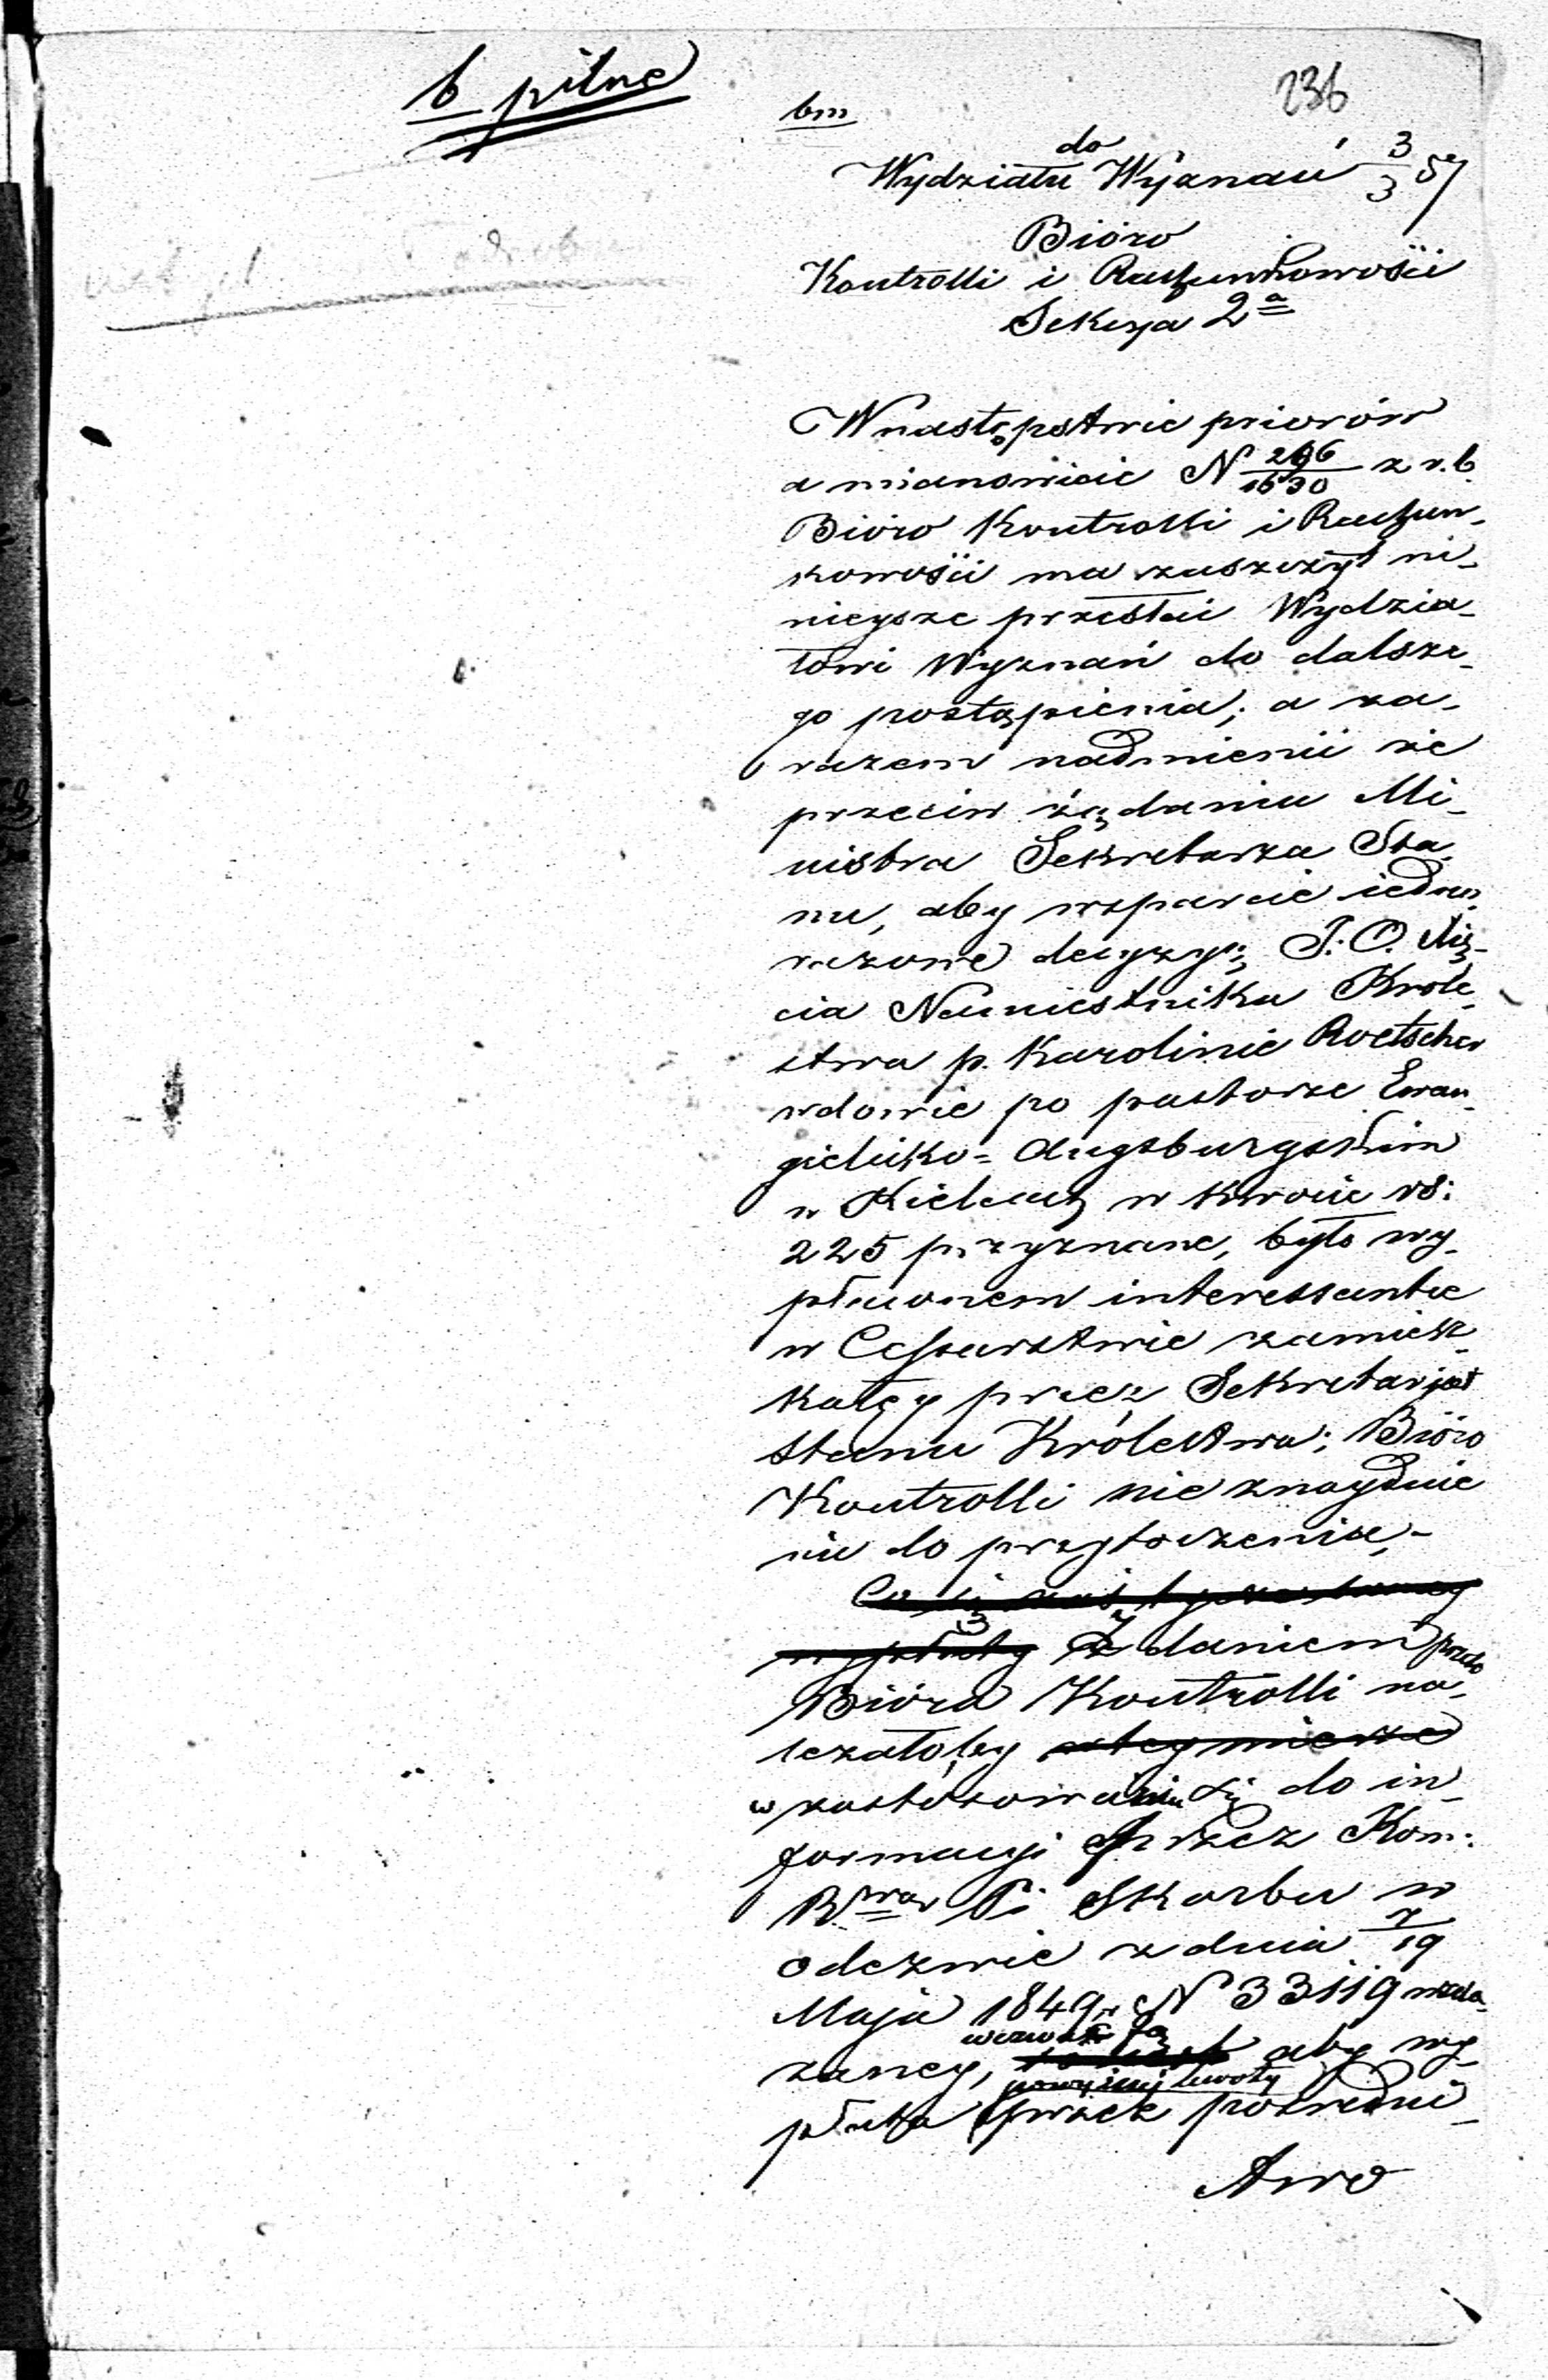 b pilne
236
bm
do
Wydziału Wyznań 3/3 57
Bióro
Kontrolli i Rachunkowości
Sekcya 2a
W następstwie priorów
a mianowicie N 296/1630 z r. b.
Bióro Kontrolli i Rachun-
kowości ma zaszczyt ni-
nieysze przesłać Wydzia-
łowi Wyznań do dalsze-
go postąpienia; a za-
razem nadmienić że
przeciw żądaniu Mi-
nistra Sekretarza Sta-
nu, aby wsparcie iedno-
razowe decyzyą J. O. Xię-
cia Namiestnika Króle-
stwa p. Karolinie Roetscher
wdowie po pastorze Ewan-
gielicko-Augsburgskim
w Kielcach w kwocie rs:
225 przyznane, było wy-
płaconem interessantce
w Cesarstwie zamiesz-
kałey przez Sekretarjat
Stanu Królestwa; Bióro
Kontrolli nie znayduie
nic do przytoczenia,-
Co się zaś tycze samey
wypłaty Zdaniem przeto
Bióra Kontrolli na-
leżałoby
w zastosowaniu się do in-
formacyi przez Kom:
Rwą P i Skarbu w
odezwie z dnia 7/19
Maja 1849 r. N 33119 wska-
zaney, wezwać ją aby wy-
płata powyższej kwoty przez pośredni-
ctwo